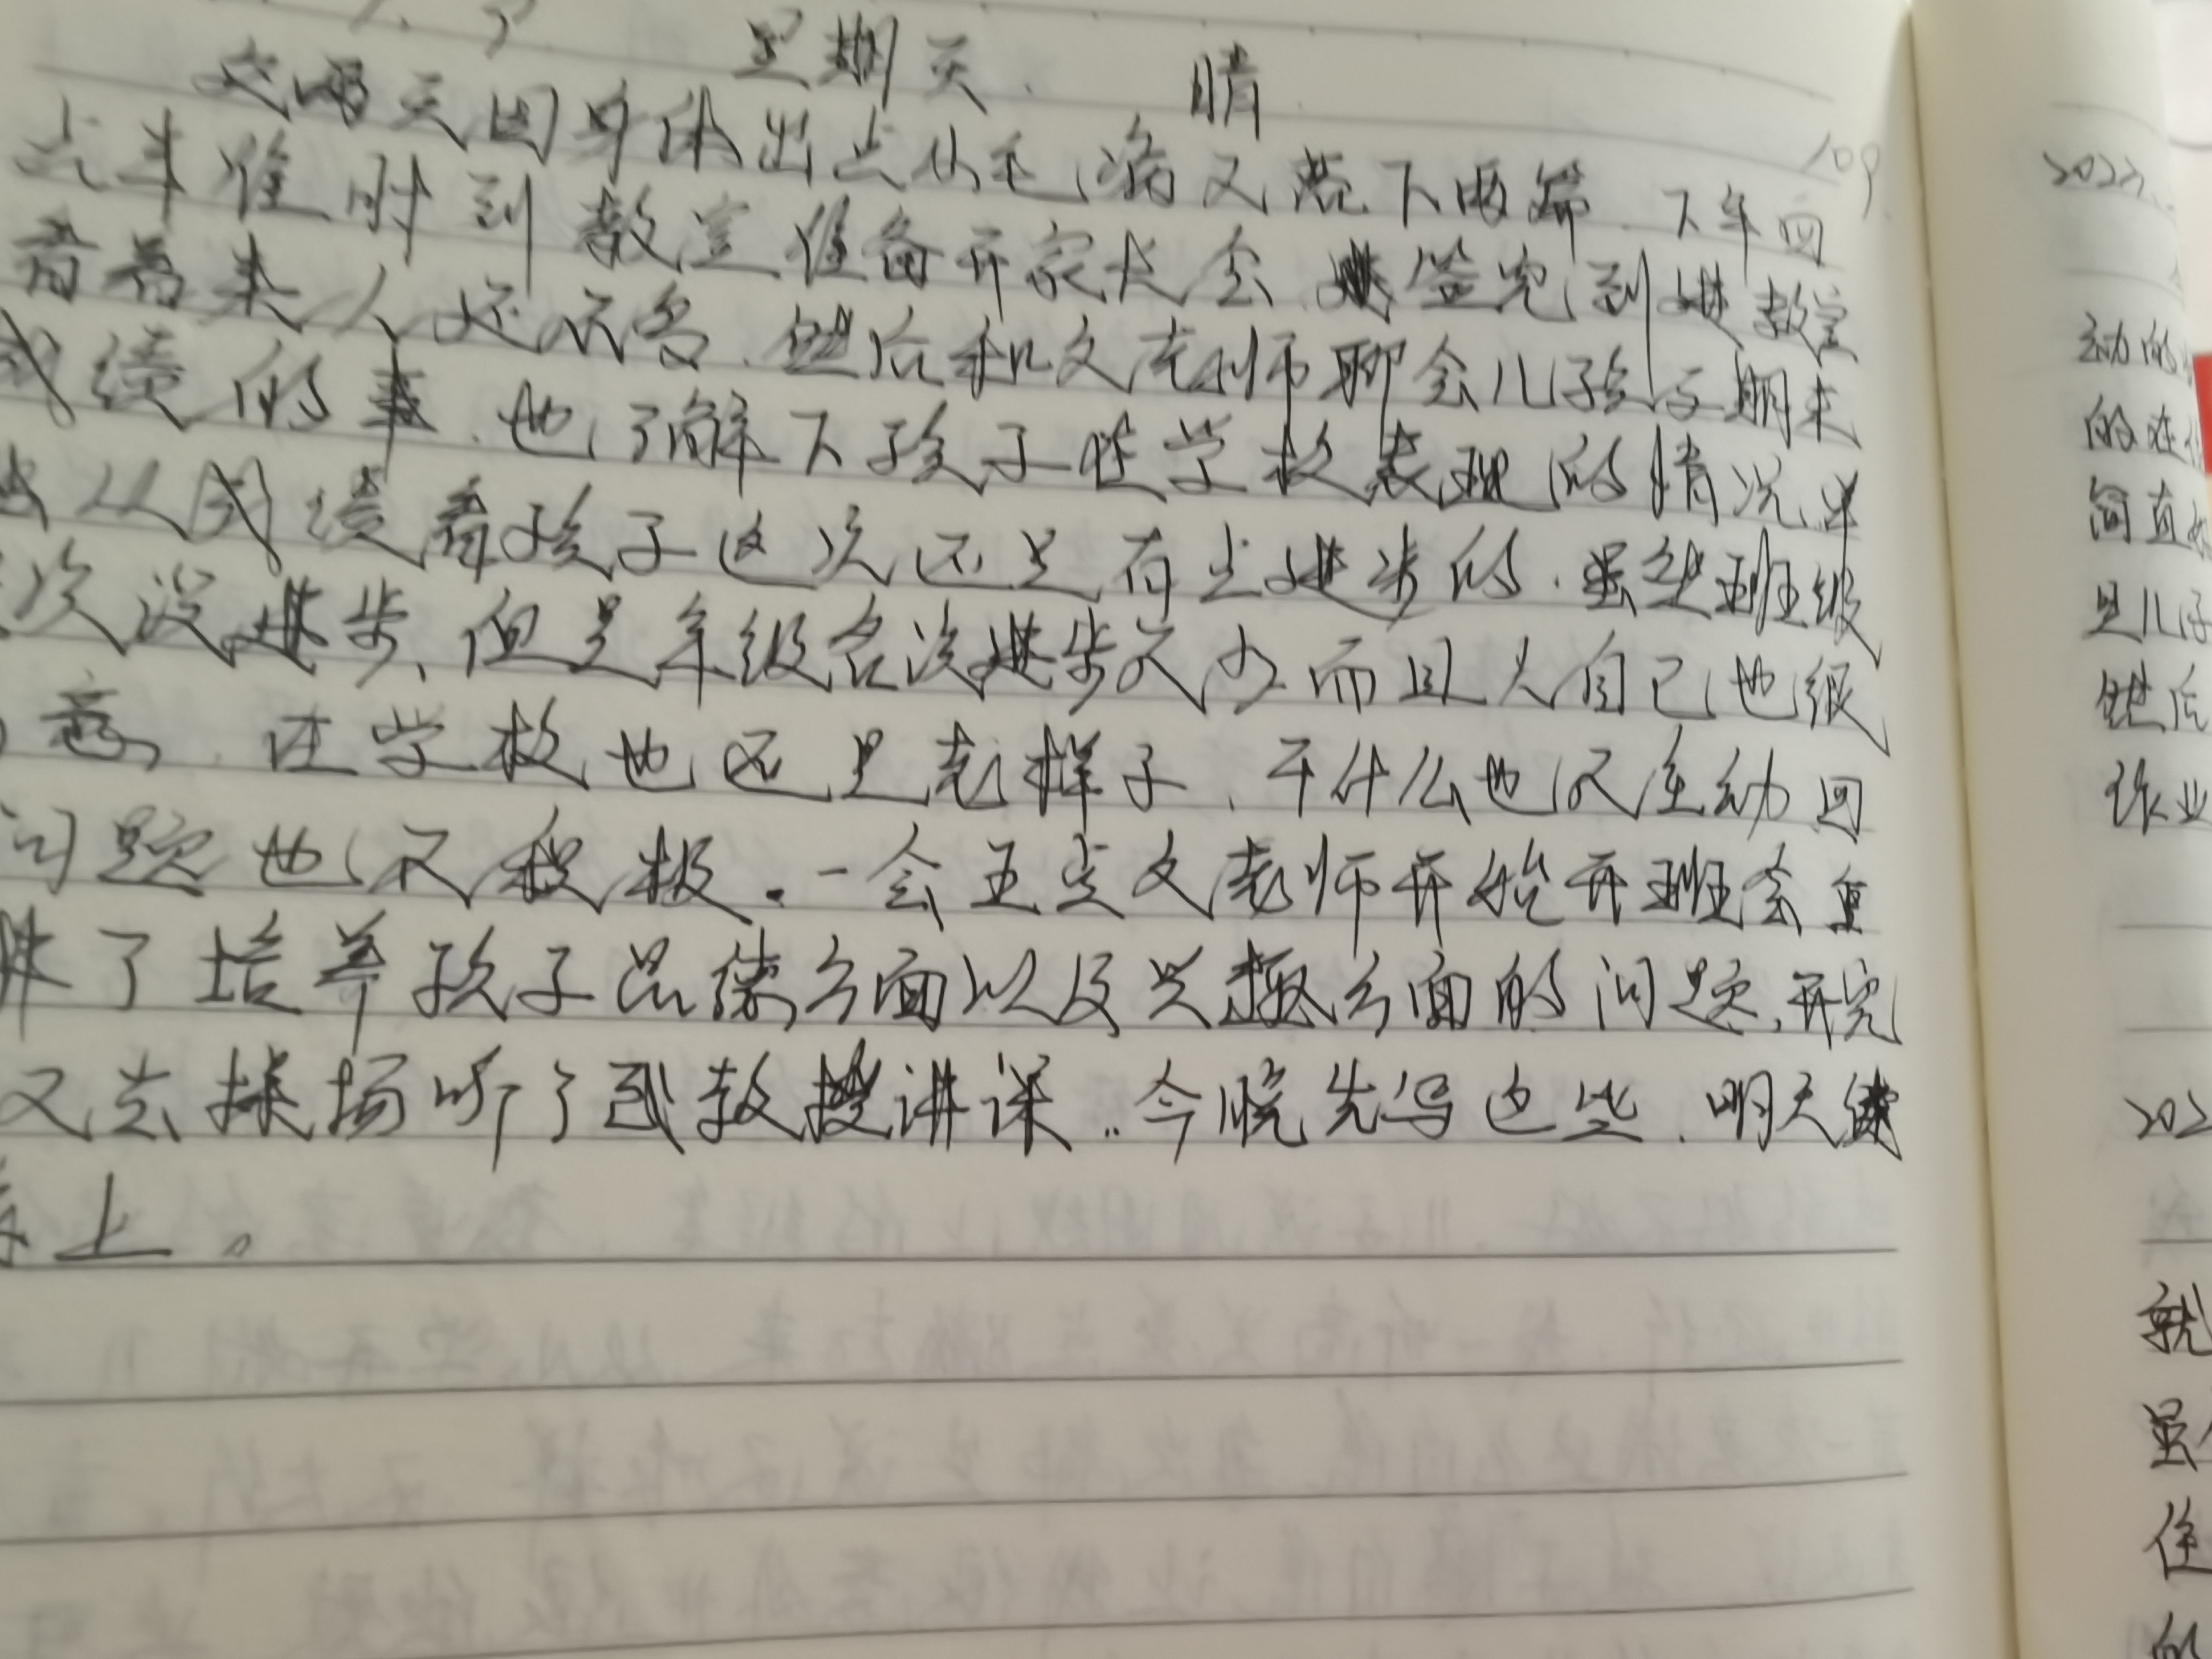 星期天. 晴.
109.
这两天因身体出点小毛病又落下两篇. 下午四
点半准时到教室准备开家长会 签完到进教室
看看来人还不多. 然后和文老师聊会儿孩子期末
成绩的事. 也了解下孩子在学校表现的情况. 单
从成绩看孩子这次还是有点进步的. 虽然班级
次没进步, 但是年级名次进步不少 而且人自己也很
意. 在学校也还是老样子. 干什么也不主动 回
问题也不积极. 一会五点文老师开始开班会 重
讲了培养孩子品德方面以及兴趣方面的问题, 开完
又去操场听了 教授讲课.. 今晚先写这些. 明天续
上。
2022.
动的
的在
简直
是儿子
然后
作业
202
就
虽
住
的